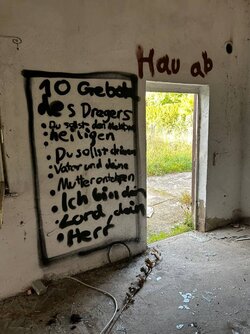 Hau ab
10 Gebote
des Dragers
• Du sollst den
heiligen
• Du sollst deinen
Vater und deine
Mutter entehren
• Ich bin dein
Lord, dein
Herr